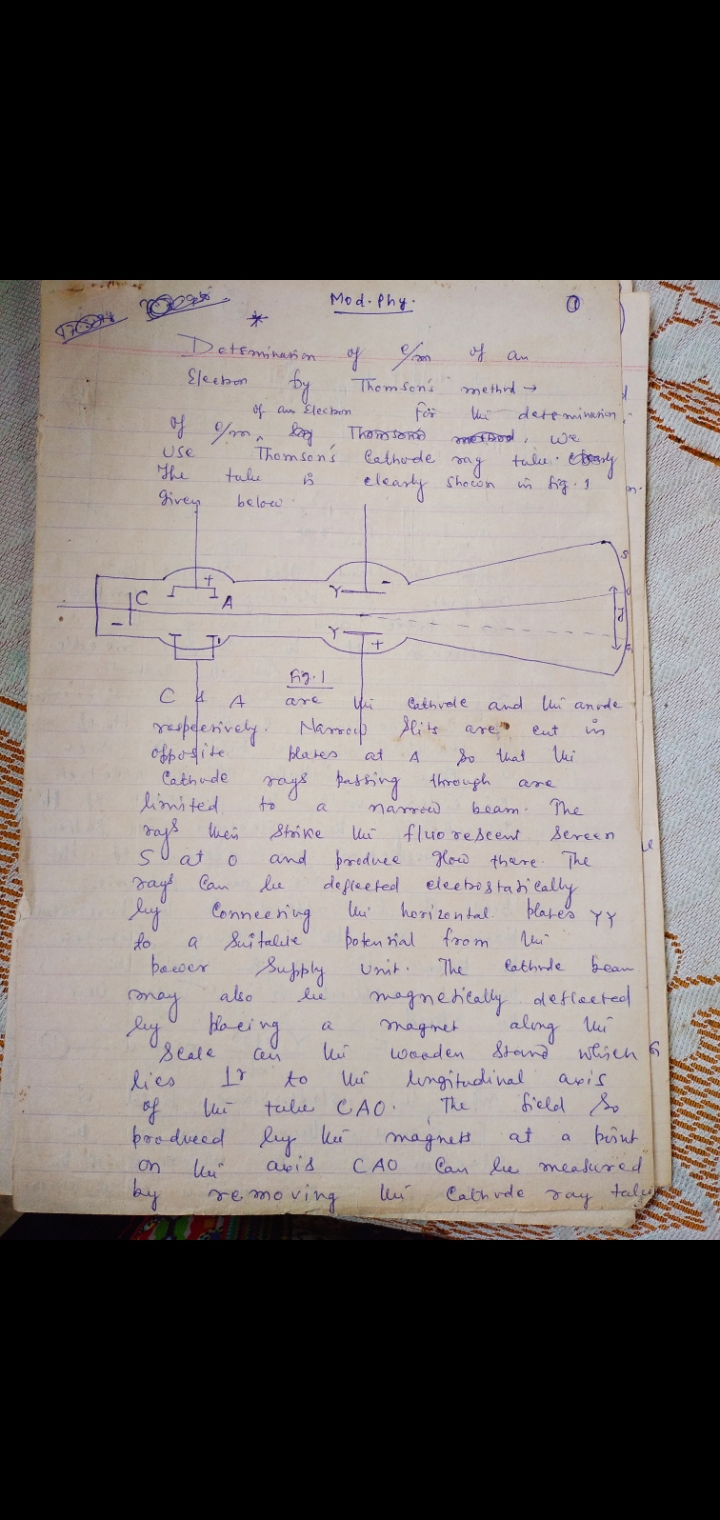 Mod. Phy. 1
*
Determination of e/m of an
Electron by Thomson's method →
of an Electron For the determination
of e/m, by Thomson's method, we
use Thomson's Cathode ray tube. Clearly
The tube is clearly shown in fig. 1
given below.
+ - S
C A Y
- Y + d
Fig. 1
C & A are the cathode and the anode
respectively. Narrow slits are cut in
opposite plates at A so that the
Cathode rays passing through are
limited to a narrow beam. The
rays then strike the fluorescent screen
S at O and produce glow there. The
rays Can be deflected electrostatically
by Connecting the horizontal plates YY
to a Suitable potential from the
power Supply Unit. The Cathode beam
may also be magnetically deflected
by placing a magnet along the
Scale on the wooden Stand which is
lies ⊥r to the longitudinal axis
of the tube CAO. The field So
produced by the magnets at a point
on the axis CAO Can be measured
by removing the Cathode ray tube